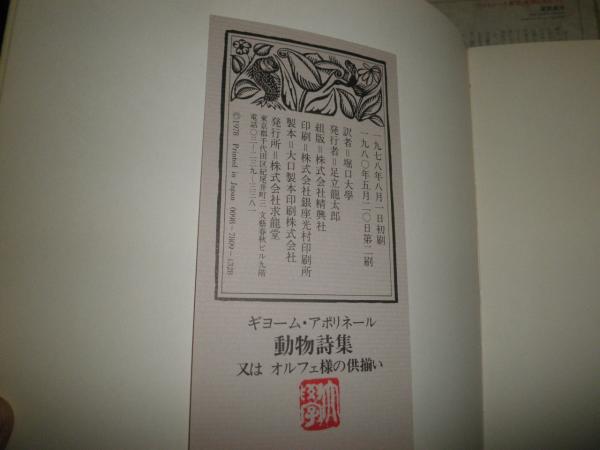 一九七八年八月一日初刷
一九八〇年五月二〇日第二刷
訳者＝堀口大學
発行者＝足立龍太郎
組版＝株式会社精興社
印刷＝株式会社銀座光村印刷所
製本＝大口製本印刷株式会社
発行所＝株式会社求龍堂
東京都千代田区紀尾井町三 文藝春秋ビル九階
電話〇三―二三九―三三八一
©1978 Printed in Japan 0098-7809-1328
ギヨーム・アポリネール
動物詩集
又は オルフェ様の供揃い